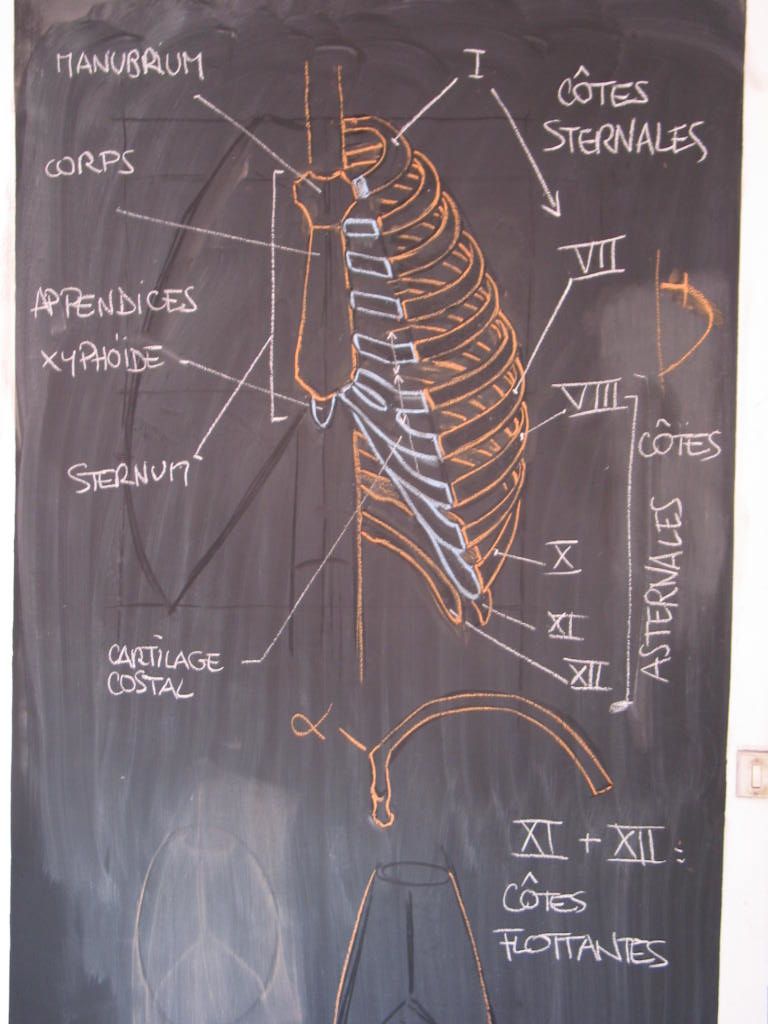 MANUBRIUM
I
CÔTES
STERNALES
CORPS
VII
APPENDICES
XYPHOÏDE
VIII
CÔTES
ASTERNALES
STERNUM
X
XI
XII
CARTILAGE
COSTAL
α
XI + XII :
CÔTES
FLOTTANTES